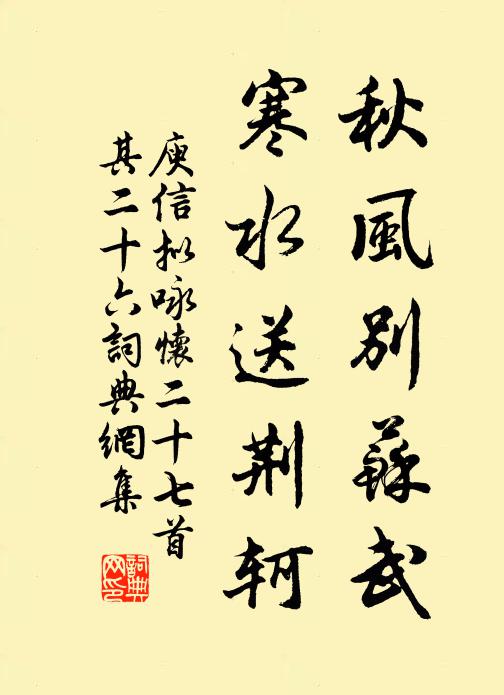 秋風別蘇武
寒水送荆軻
庾信拟咏懷二十七首
其二十六詞典網集
詞典
网印